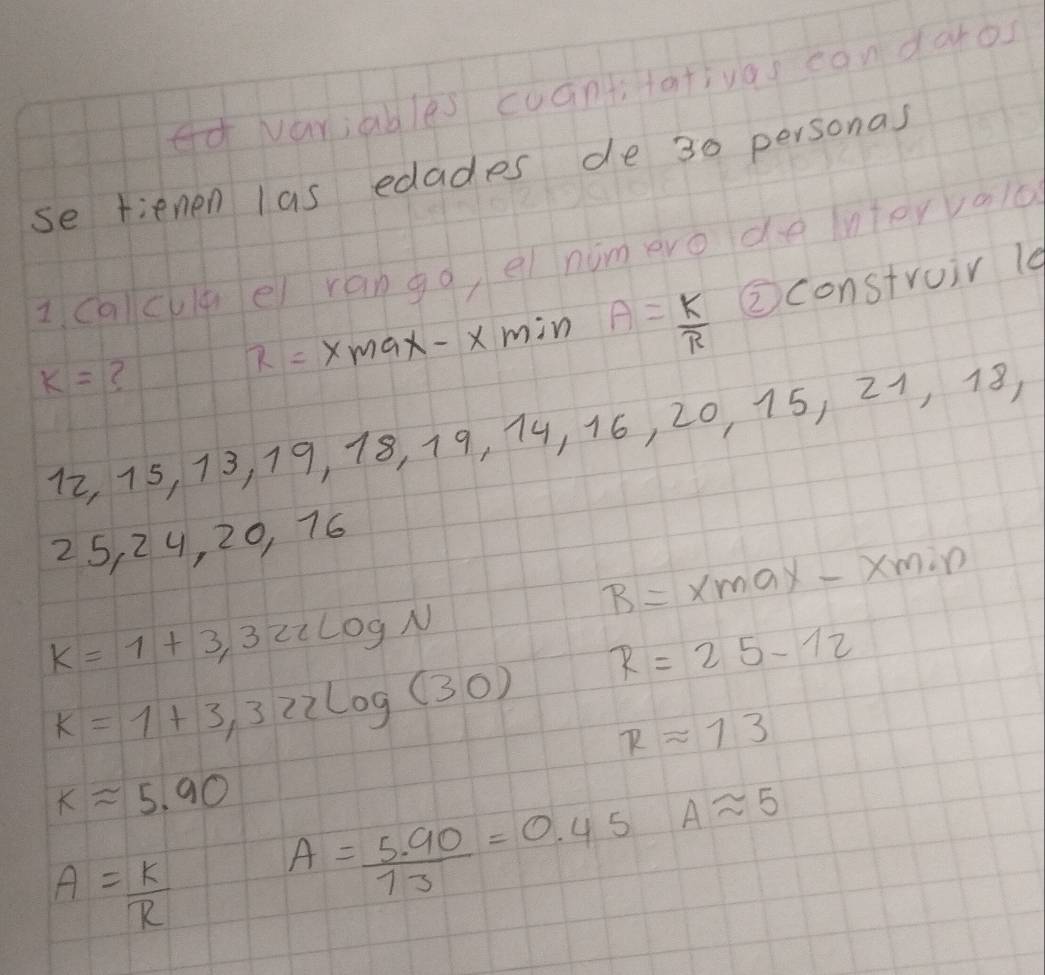 variables cuantitativas con datos
se tienen las edades de 30 personas
1. Calcula el rango, el número de intervalos
K = ? R = xmax - xmin A = K/R ② construir
12, 15, 13, 19, 18, 19, 14, 16, 20, 15, 21, 18,
25, 24, 20, 16
K = 1 + 3,322 Log N R = xmax - xmin
K = 1 + 3,322 Log (30) R = 25 - 12
K ≈ 5.90 R ≈ 13
A = K/R A = 5.90/13 = 0.45 A ≈ 5